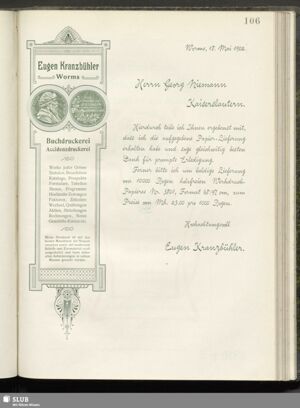 106
Eugen Kranzbühler
Worms
Buchdruckerei
Accidenzdruckerei
Werke jeder Grösse
Kataloge, Prospekte
Formulare, Tabellen
Noten, Programme
Hochzeits-Zeitungen
Fakturen, Zirkulare
Wechsel, Quittungen
Aktien, Einladungen
Rechnungen, Noten
Worms, 15. Mai 1902.
Herrn Georg Niemann
Kaiserslautern.
Hierdurch teile ich Ihnen ergebenst mit,
dass ich die aufgegebene Papier-Lieferung
erhalten habe und sage gleichzeitig besten
Dank für prompte Erledigung.
Ferner bitte ich um baldige Lieferung
von 10000 Bogen holzfreien Werkdruck-
Papiers No. 3501, Format 65:92 cm, zum
Preise von Mk. 23.00 pro 1000 Bogen.
Hochachtungsvoll
Eugen Kranzbühler.
SLUB
Wir führen Wissen.